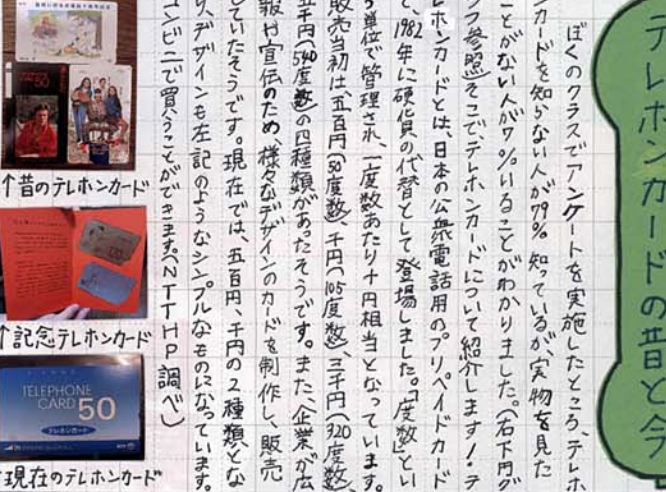 テレホンカードの昔と今
ぼくのクラスでアンケートを実施したところ、テレホ
ンカードを知らない人が79% 知っているが、実物を見た
ことがない人が7%いることがわかりました。(右下円グ
ラフ参照)そこで、テレホンカードについて紹介します!テ
レホンカードとは、日本の公衆電話用のプリペイドカード
で、1982年に硬貨の代替として登場しました。「度数」とい
う単位で管理され、一度数あたり十円相当となっています。
販売当初は、五百円(50度数)、千円(105度数)、三千円(320度数)、
五千円(540度数)の四種類があったそうです。また、企業が広
報や宣伝のため、様々なデザインのカードを制作し、販売
していたそうです。現在では、五百円、千円の2種類とな
り、デザインも左記のようなシンプルなものになっています。
コンビニで買うことができます(NTTHP調べ)
↑昔のテレホンカード
↑記念テレホンカード
TELEPHONE
CARD 50
テレホンカード
↑現在のテレホンカード